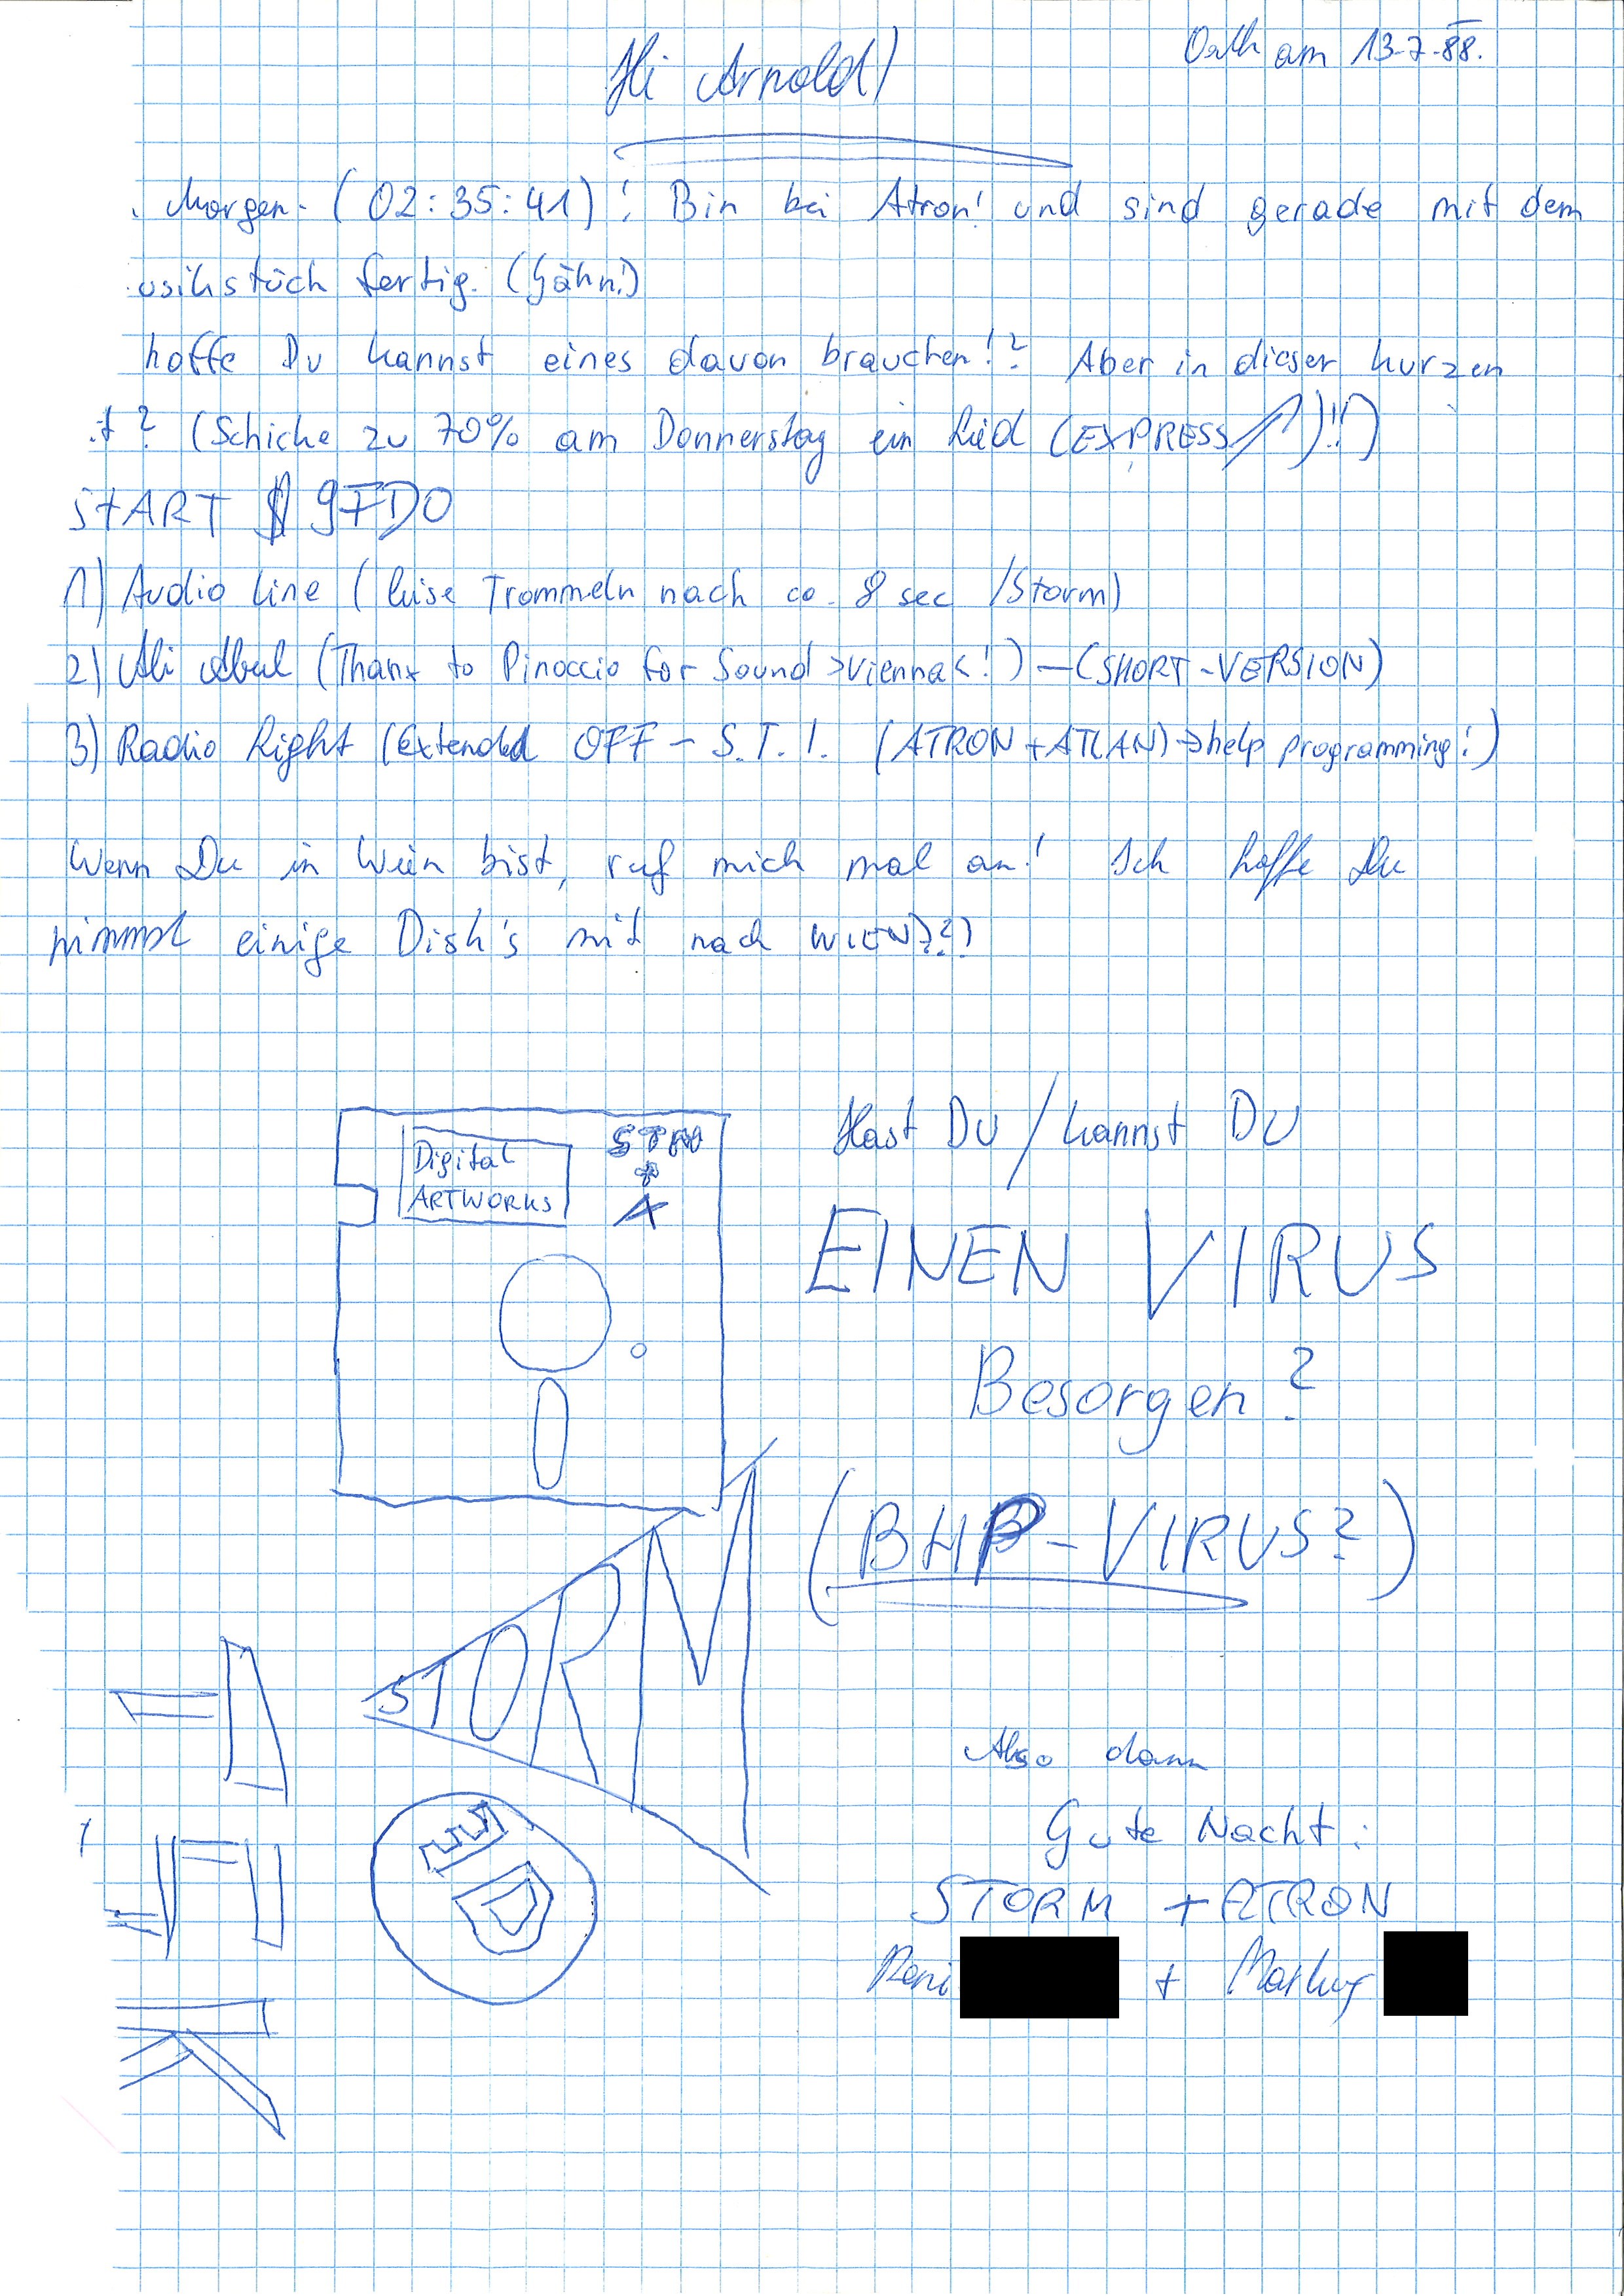 Orth am 13-7-88.
Hi Arnold!
. Morgen. (02:35:41)! Bin bei Atron! und sind gerade mit dem
usikstück fertig. (Gähn!)
hoffe Du kannst eines davon brauchen!? Aber in dieser kurzen
it? (Schicke zu 70% am Donnerstag ein Lied (EXPRESS)!!)
START $9FD0
1) Audio Line (leise Trommeln nach ca. 8 sec /Storm)
2) Ali Abul (Thanx to Pinoccio for Sound >vienna<!) - (SHORT-VERSION)
3) Radio Right (Extended OFF - S.T.!. (ATRON + ATLAN) → help programming!)
Wenn Du in Wien bist, ruf mich mal an! Ich hoffe Du
nimmst einige Disk's mit nach WIEN???
Digital
ARTWORKS
STM
+
A
Hast DU / kannst DU
EINEN VIRUS
Besorgen?
(BHP-VIRUS?)
STORM
Also dann
Gute Nacht:
STORM + ATRON
Reni + Markus